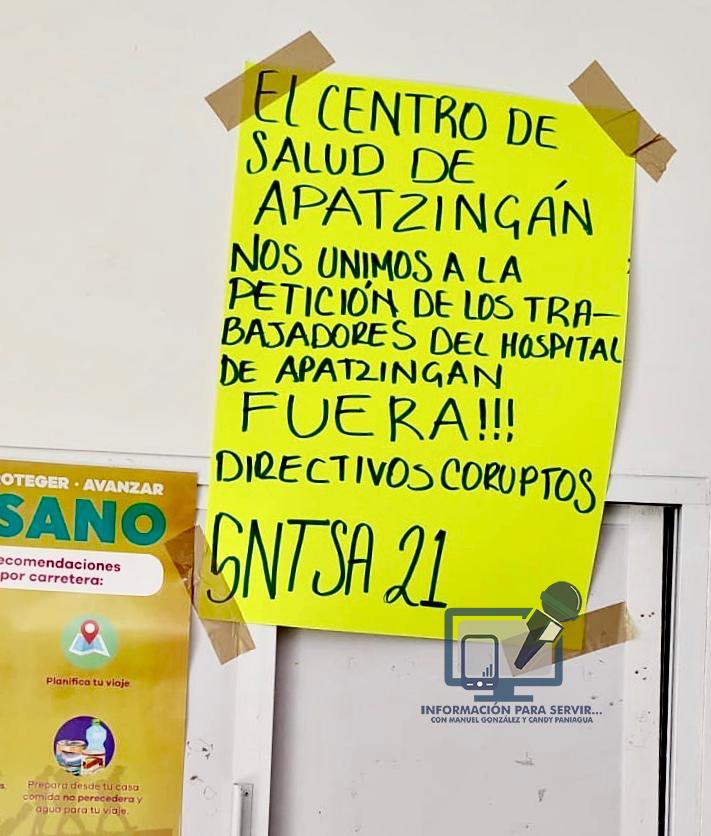 El CENTRO DE
SALUD DE
APATZINGÁN
NOS UNIMOS A LA
PETICIÓN DE LOS TRA-
BAJADORES DEL HOSPITAL
DE APATZINGAN
FUERA!!!
DIRECTIVOS CORUPTOS
SNTSA 21
OTEGER · AVANZAR
SANO
ecomendaciones
por carretera:
Planifica tu viaje.
s.
Prepara desde tu casa
comida no perecedera y
agua para tu viaje.
INFORMACIÓN PARA SERVIR...
CON MANUEL GONZÁLEZ Y CANDY PANIAGUA